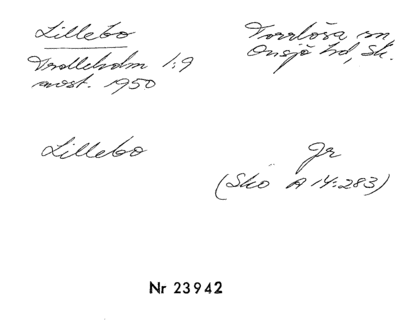 Lillebo
Torrlösa sn
Trolleholm 1:9
Onsjö hd, Sk.
avst. 1950
Lillebo
Jr
(Sko A 14:283)
Nr 23942